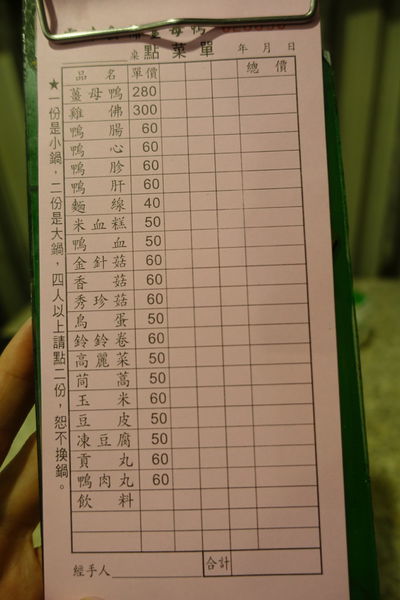 母鴨
桌 點菜單 年 月 日
品名 單價 總價
薑母鴨 280
雞佛 300
鴨腸 60
鴨心 60
鴨胗 60
鴨肝 60
麵線 40
米血糕 50
鴨血 50
金針菇 60
香菇 60
秀珍菇 60
鳥蛋 50
鈴鈴卷 60
高麗菜 50
茼蒿 50
玉米 60
豆皮 50
凍豆腐 50
貢丸 60
鴨肉丸 60
飲料
經手人 合計
★一份是小鍋,二份是大鍋,四人以上請點二份,恕不換鍋。